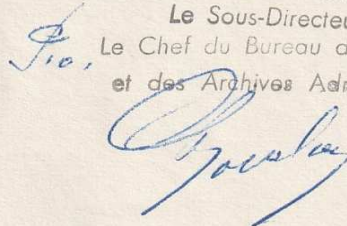 Le Sous-Directeu
P.o. Le Chef du Bureau d
et des Archives Adm